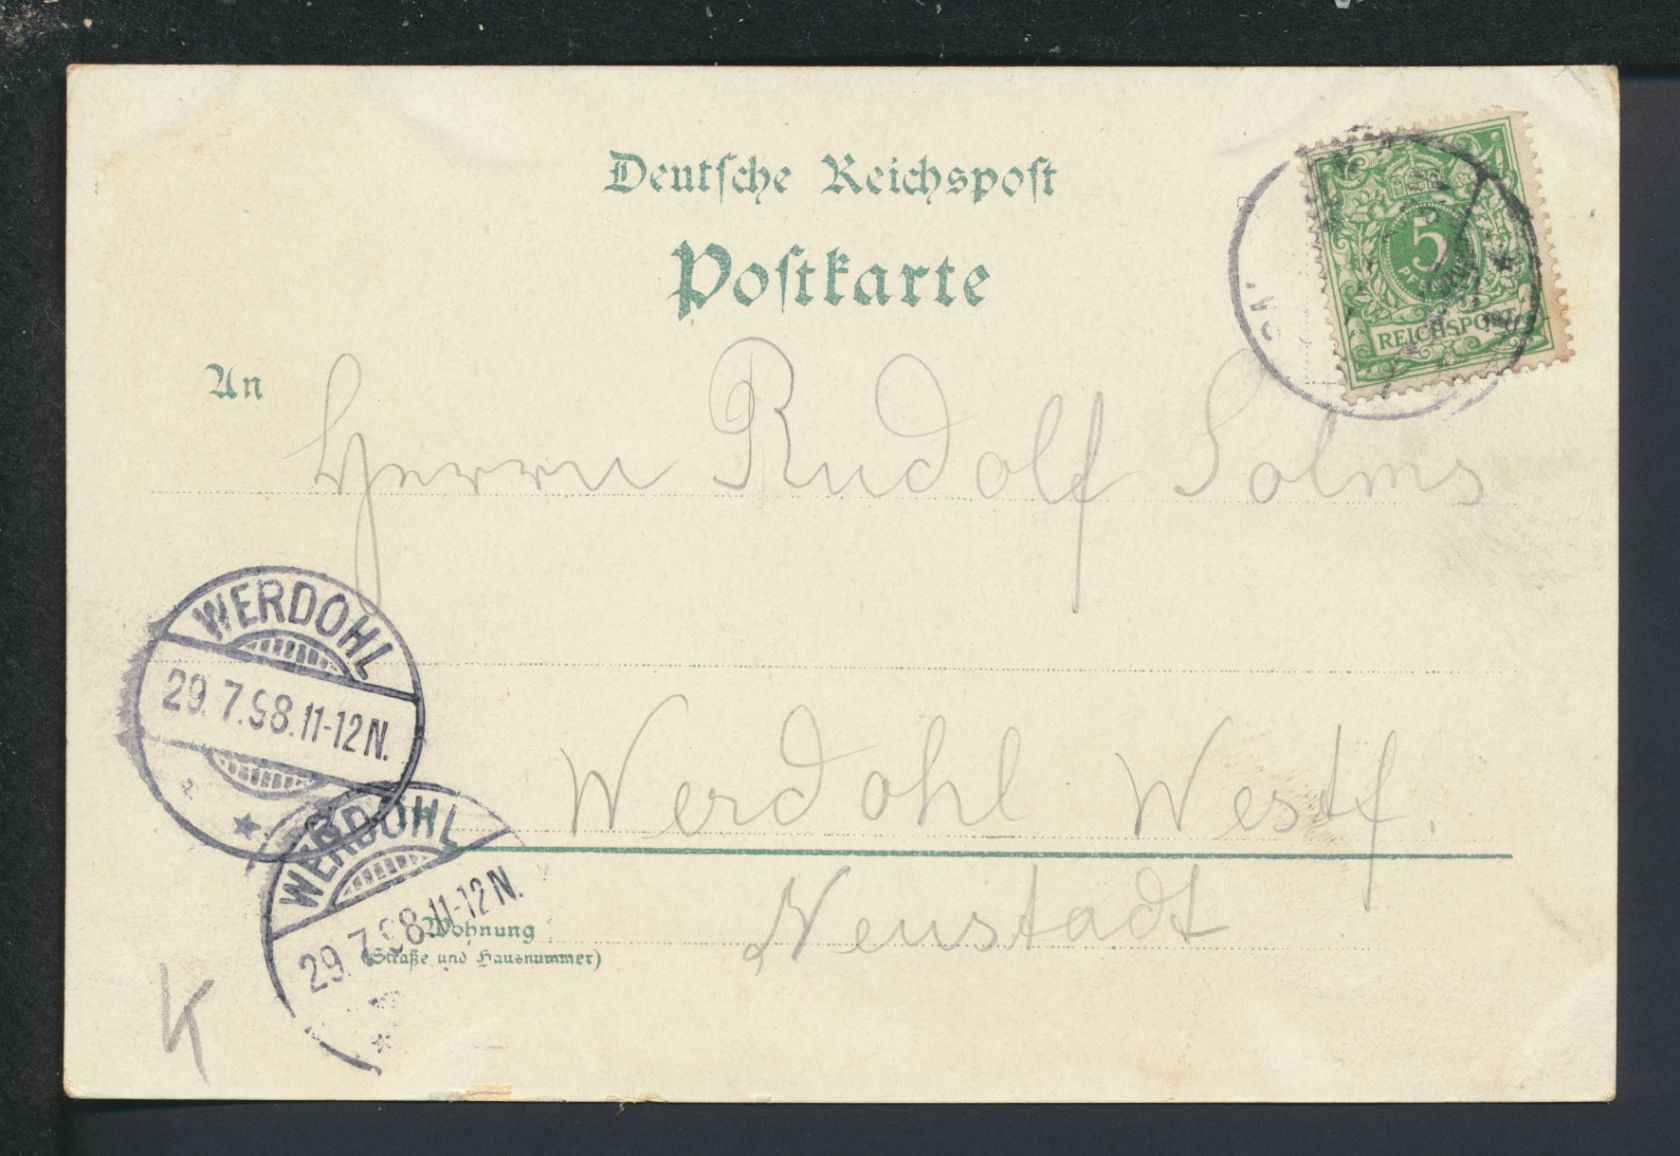 Deutsche Reichspost
Postkarte
5
PF
REICHSPOST
An
Herrn Rudolf Solms
WERDOHL
29.7.98.11-12N.
Werdohl Westf.
WERDOHL
29.7.98.11-12N.
Neustadt
Wohnung
(Straße und Hausnummer)
K